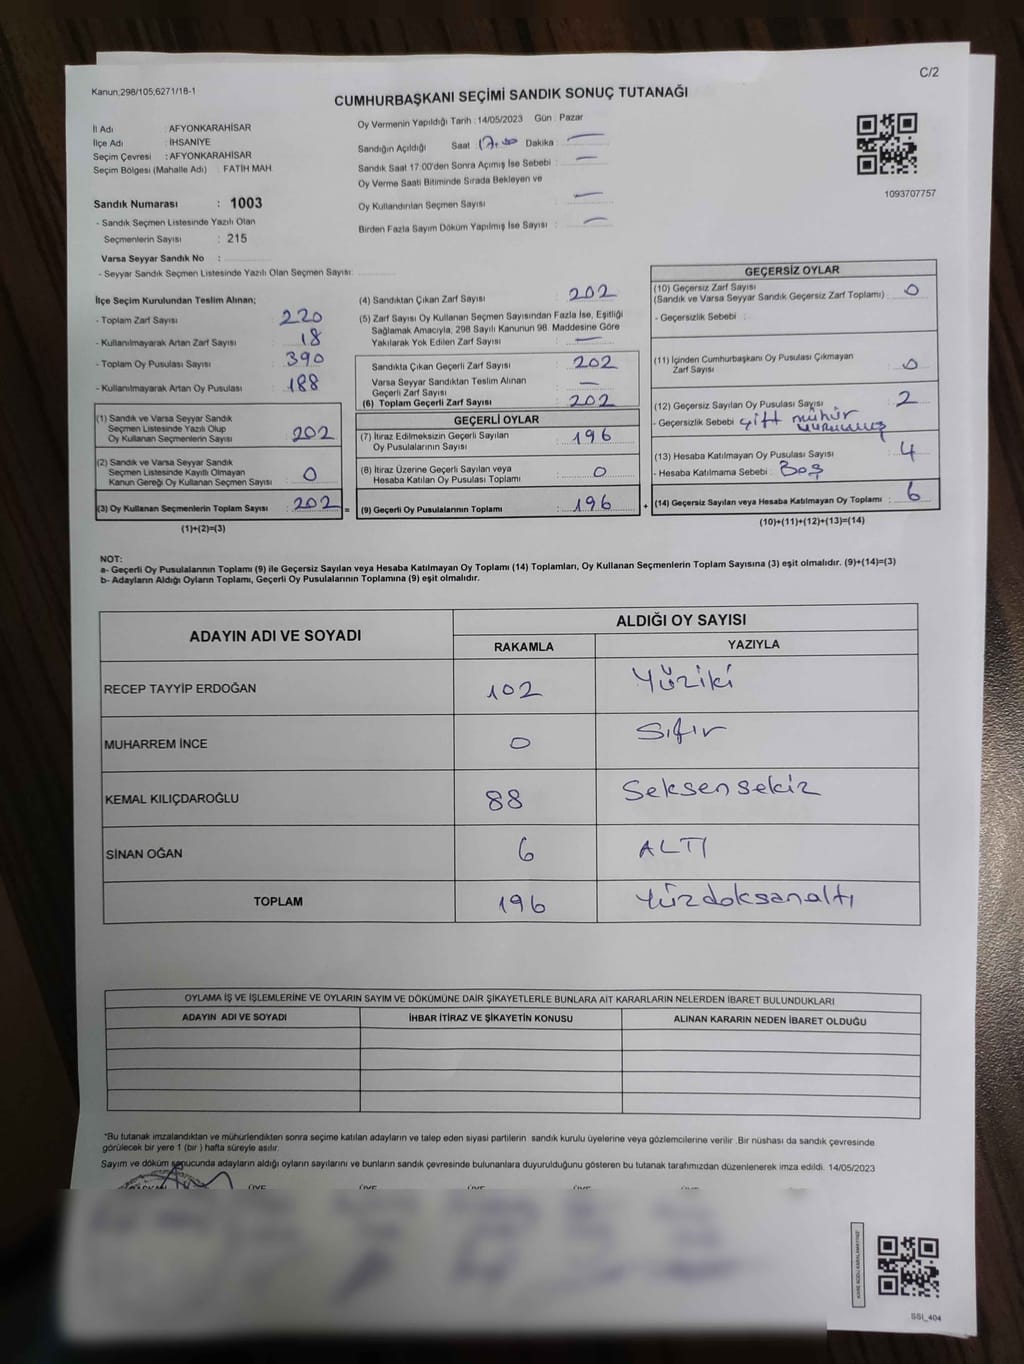 C/2
Kanun;298/105;6271/18-1
CUMHURBAŞKANI SEÇİMİ SANDIK SONUÇ TUTANAĞI
İl Adı : AFYONKARAHİSAR
İlçe Adı : İHSANİYE
Seçim Çevresi : AFYONKARAHİSAR
Seçim Bölgesi (Mahalle Adı) : FATİH MAH
Sandık Numarası : 1003
- Sandık Seçmen Listesinde Yazılı Olan
Seçmenlerin Sayısı : 215
Varsa Seyyar Sandık No :
- Seyyar Sandık Seçmen Listesinde Yazılı Olan Seçmen Sayısı:
Oy Vermenin Yapıldığı Tarih : 14/05/2023 Gün : Pazar
Sandığın Açıldığı Saat 17.00 Dakika : —
Sandık Saat 17:00'den Sonra Açımış İse Sebebi : —
Oy Verme Saati Bitiminde Sırada Bekleyen ve
Oy Kullandırılan Seçmen Sayısı —
Birden Fazla Sayım Döküm Yapılmış İse Sayısı : —
1093707757
İlçe Seçim Kurulundan Teslim Alınan;
- Toplam Zarf Sayısı 220
- Kullanılmayarak Artan Zarf Sayısı 18
- Toplam Oy Pusulası Sayısı 390
- Kullanılmayarak Artan Oy Pusulası 188
(1) Sandık ve Varsa Seyyar Sandık
Seçmen Listesinde Yazılı Olup
Oy Kullanan Seçmenlerin Sayısı 202
(2) Sandık ve Varsa Seyyar Sandık
Seçmen Listesinde Kayıtlı Olmayan
Kanun Gereği Oy Kullanan Seçmen Sayısı : 0
(3) Oy Kullanan Seçmenlerin Toplam Sayısı : 202 =
(1)+(2)=(3)
(4) Sandıktan Çıkan Zarf Sayısı : 202
(5) Zarf Sayısı Oy Kullanan Seçmen Sayısından Fazla İse, Eşitliği
Sağlamak Amacıyla, 298 Sayılı Kanunun 98. Maddesine Göre
Yakılarak Yok Edilen Zarf Sayısı : —
Sandıkta Çıkan Geçerli Zarf Sayısı : 202
Varsa Seyyar Sandıktan Teslim Alınan
Geçerli Zarf Sayısı : —
(6) Toplam Geçerli Zarf Sayısı : 202
GEÇERLİ OYLAR
(7) İtiraz Edilmeksizin Geçerli Sayılan
Oy Pusulasının Sayısı : 196
(8) İtiraz Üzerine Geçerli Sayılan veya
Hesaba Katılan Oy Pusulası Toplamı : 0
(9) Geçerli Oy Pusulalarının Toplamı : 196 +
GEÇERSİZ OYLAR
(10) Geçersiz Zarf Sayısı
(Sandık ve Varsa Seyyar Sandık Geçersiz Zarf Toplamı) : 0
- Geçersizlik Sebebi :
(11) İçinden Cumhurbaşkanı Oy Pusulası Çıkmayan
Zarf Sayısı : 0
(12) Geçersiz Sayılan Oy Pusulası Sayısı : 2
- Geçersizlik Sebebi : Çift mühür
vurulmuş
(13) Hesaba Katılmayan Oy Pusulası Sayısı : 4
- Hesaba Katılmama Sebebi : Boş
(14) Geçersiz Sayılan veya Hesaba Katılmayan Oy Toplamı : 6
(10)+(11)+(12)+(13)=(14)
NOT:
a- Geçerli Oy Pusulalarının Toplamı (9) ile Geçersiz Sayılan veya Hesaba Katılmayan Oy Toplamı (14) Toplamları, Oy Kullanan Seçmenlerin Toplam Sayısına (3) eşit olmalıdır. (9)+(14)=(3)
b- Adayların Aldığı Oyların Toplamı, Geçerli Oy Pusulalarının Toplamına (9) eşit olmalıdır.
ADAYIN ADI VE SOYADI
ALDIĞI OY SAYISI
RAKAMLA YAZIYLA
RECEP TAYYİP ERDOĞAN 102 Yüziki
MUHARREM İNCE 0 Sıfır
KEMAL KILIÇDAROĞLU 88 Seksensekiz
SİNAN OĞAN 6 ALTI
TOPLAM 196 Yüzdoksanaltı
OYLAMA İŞ VE İŞLEMLERİNE VE OYLARIN SAYIM VE DÖKÜMÜNE DAİR ŞİKAYETLERLE BUNLARA AİT KARARLARIN NELERDEN İBARET BULUNDUKLARI
ADAYIN ADI VE SOYADI İHBAR İTİRAZ VE ŞİKAYETİN KONUSU ALINAN KARARIN NEDEN İBARET OLDUĞU
*Bu tutanak imzalandıktan ve mühürlendikten sonra seçime katılan adayların ve talep eden siyasi partilerin sandık kurulu üyelerine veya gözlemcilerine verilir .Bir nüshası da sandık çevresinde
görülecek bir yere 1 (bir ) hafta süreyle asılır.
Sayım ve döküm sonucunda adayların aldığı oyların sayılarını ve bunların sandık çevresinde bulunanlara duyurulduğunu gösteren bu tutanak tarafımızdan düzenlenerek imza edildi. 14/05/2023
BAŞKAN ÜYE ÜYE ÜYE ÜYE ÜYE
SSI_404